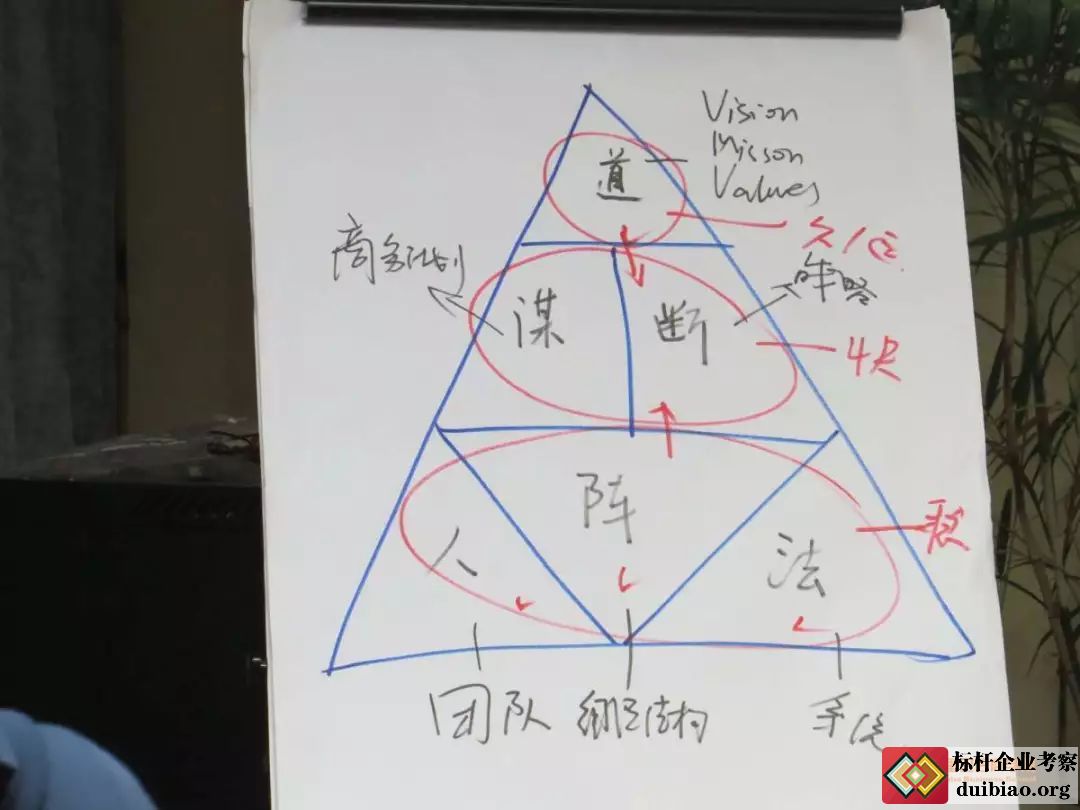 Vision
Misson
Values
道
商务计划
谋
断
人
阵
法
团队
组织结构
系统
标杆企业考察
duibiao.org